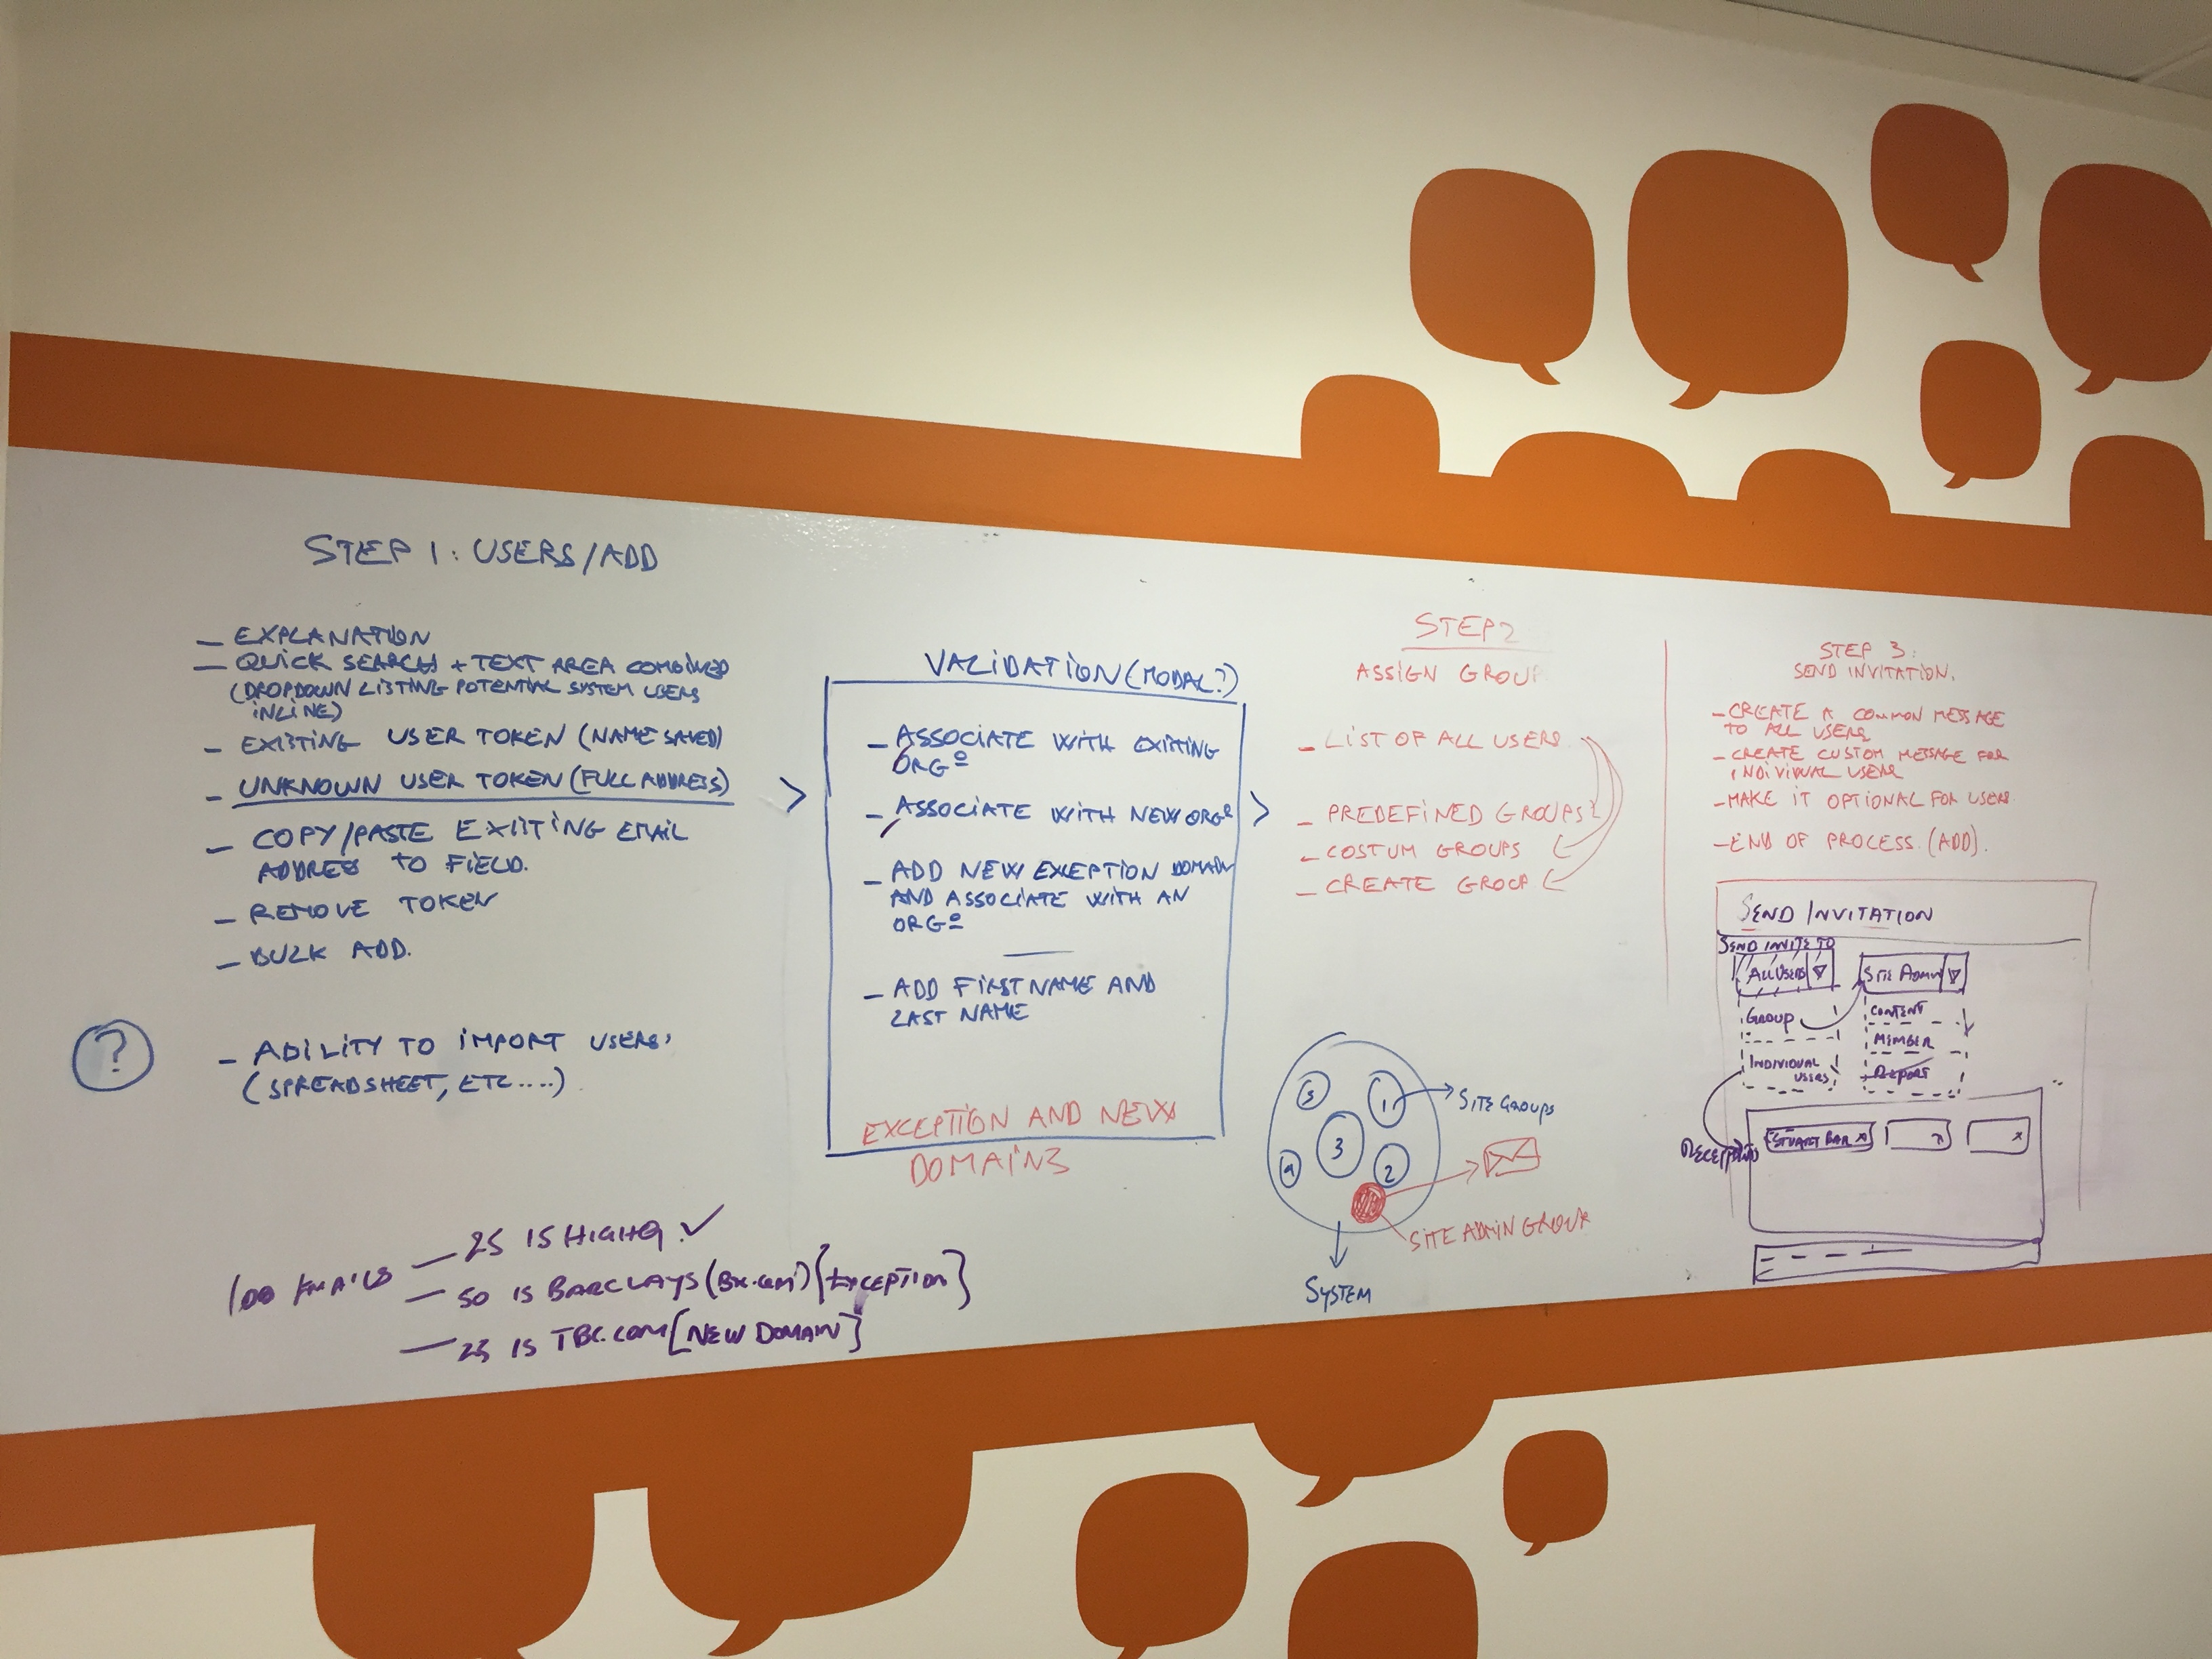 STEP 1: USERS/ADD
– EXPLANATION
– QUICK SEARCH + TEXT AREA COMBINED
(DROPDOWN LISTING POTENTIAL SYSTEM USERS
INLINE)
– EXISTING USER TOKEN (NAME SAVED)
– UNKNOWN USER TOKEN (FULL ADDRESS)
– COPY/PASTE EXISTING EMAIL
ADDRESS TO FIELD.
– REMOVE TOKEN
– BULK ADD.
?
– ABILITY TO IMPORT USERS
(SPREADSHEET, ETC....)
100 EMAILS
– 25 IS HIGHQ ✓
– 50 IS BARCLAYS (BX.COM) {EXCEPTION}
– 25 IS TBC.COM [NEW DOMAIN]
>
VALIDATION (MODAL?)
– ASSOCIATE WITH EXISTING
ORGº
– ASSOCIATE WITH NEW ORGº
– ADD NEW EXCEPTION DOMAIN
AND ASSOCIATE WITH AN
ORGº
– ADD FIRST NAME AND
LAST NAME
EXCEPTION AND NEW
DOMAINS
>
STEP 2
ASSIGN GROUP
– LIST OF ALL USERS
– PREDEFINED GROUPS?
– COSTUM GROUPS
– CREATE GROUP
5
1
3
4
2
SITE GROUPS
SITE ADMIN GROUP
SYSTEM
STEP 3:
SEND INVITATION.
– CREATE A COMMON MESSAGE
TO ALL USERS
– CREATE CUSTOM MESSAGE FOR
INDIVIUAL USERS
– MAKE IT OPTIONAL FOR USERS
– END OF PROCESS (ADD).
SEND INVITATION
SEND INVITE TO
ALL USERS
SITE ADMIN
GROUP
CONTENT
MEMBER
INDIVIDUAL
USERS
REPORT
STUART BAR x
x
x